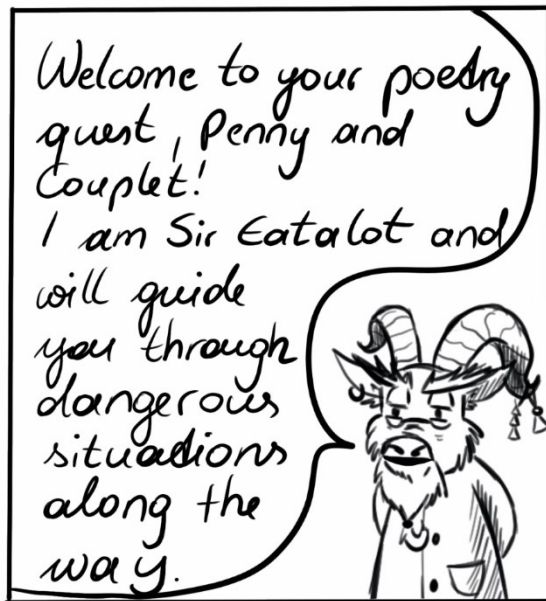 Welcome to your poetry
quest, Penny and
Couplet!
I am Sir Eatalot and
will guide
you through
dangerous
situations
along the
way.